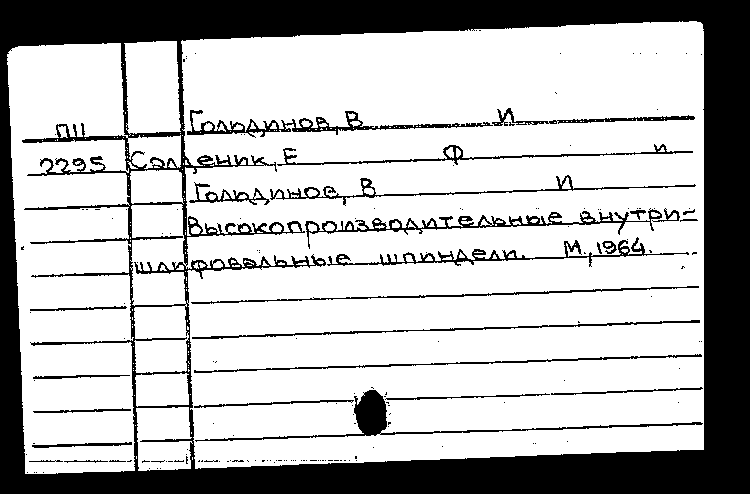 П11 Гольдинов, В И
2295 Солденик, Е Ф и
Гольдинов, В И
Высокопроизводительные внутри-
шлифовальные шпиндели. М., 1964.